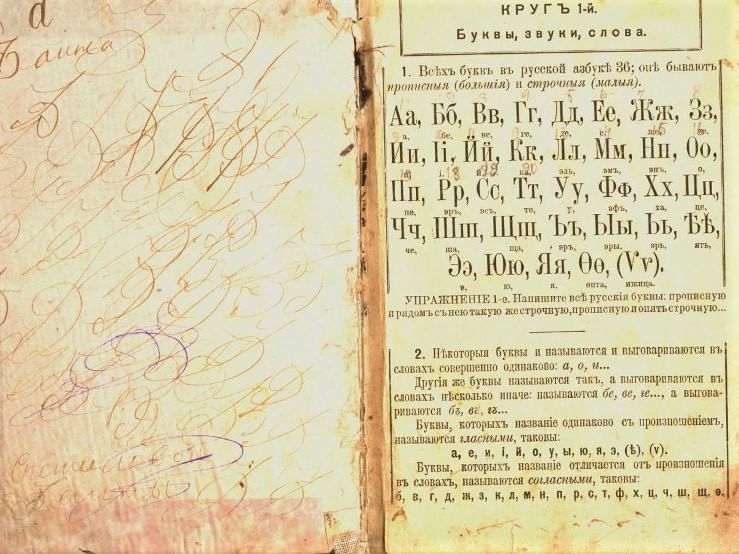 КРУГЪ 1-й.
Буквы, звуки, слова.
1. Всѣхъ буквъ въ русской азбукѣ 36; онѣ бываютъ
прописныя (большія) и строчныя (малыя).
Аа, Бб, Вв, Гг, Дд, Ее, Жж, Зз,
а, бе, ве, ге, де, е, же, зе,
Ии, Іі, Йй, Кк, Лл, Мм, Нн, Оо,
и, і, й, ка, эль, эмъ, энъ, о,
Пп, Рр, Сс, Тт, Уу, Фф, Хх, Цц,
пе, эръ, эсъ, те, у, эфъ, ха, це,
Чч, Шш, Щщ, Ъъ, Ыы, Ьь, Ѣѣ,
че, ша, ща, эръ, эры, эрь, ять,
Ээ, Юю, Яя, Ѳѳ, (Ѵѵ).
э, ю, я, ѳита, ижица.
УПРАЖНЕНІЕ 1-е. Напишите всѣ русскія буквы: прописную
и рядомъ съ нею такую же строчную, прописную и опять строчную...
2. Нѣкоторыя буквы и называются и выговариваются въ
словахъ совершенно одинаково: а, о, и...
Другія же буквы называются такъ, а выговариваются въ
словахъ нѣсколько иначе: называются бе, ве, ге..., а выгова-
риваются бъ, въ, гъ...
Буквы, которыхъ названіе одинаково съ произношеніемъ,
называются гласными, таковы:
а, е, и, і, й, о, у, ы, ю, я, э, (ѣ), (ѵ).
Буквы, которыхъ названіе отличается отъ произношенія
въ словахъ, называются согласными, таковы:
б, в, г, д, ж, з, к, л, м, н, п, р, с, т, ф, х, ц, ч, ш, щ, ѳ.